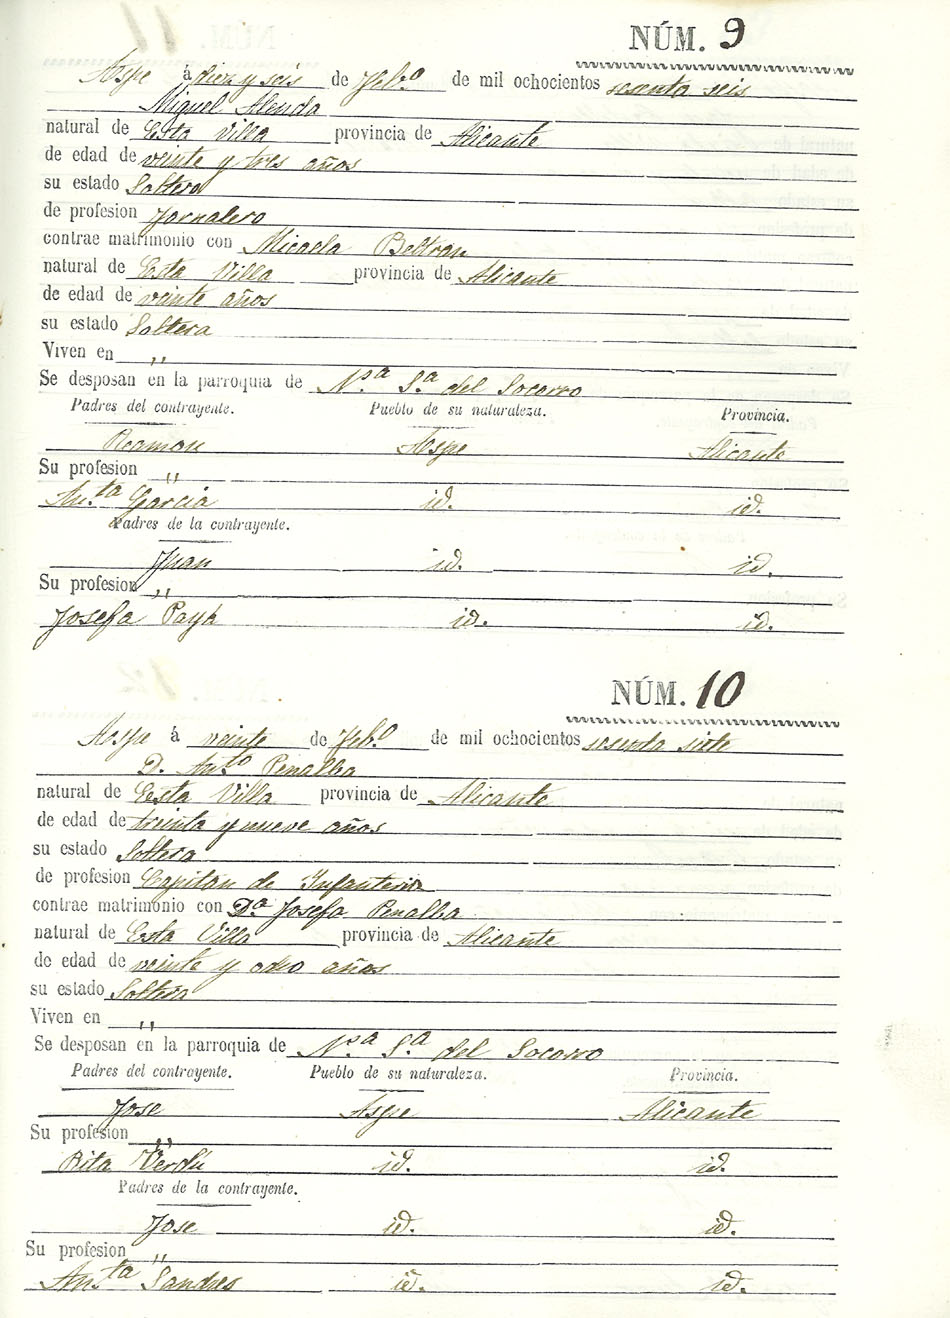 NÚM. 9
Aspe á diez y seis de Feb.º de mil ochocientos sesenta seis
Miguel Alenda
natural de Esta Villa provincia de Alicante
de edad de veinte y tres años
su estado Soltero
de profesion Jornalero
contrae matrimonio con Micaela Beltran
natural de Esta Villa provincia de Alicante
de edad de veinte años
su estado Soltera
Viven en ,,
Se desposan en la parroquia de N.ª S.ª del Socorro
Padres del contrayente. Pueblo de su naturaleza. Provincia.
Ramon Aspe Alicante
Su profesion ,,
An.ta Garcia id. id.
Padres de la contrayente.
Juan id. id.
Su profesion ,,
Josefa Payá id. id.
NÚM. 10
Aspe á veinte de Feb.º de mil ochocientos sesenta siete
D. An.to Penalba
natural de Esta Villa provincia de Alicante
de edad de treinta y nueve años
su estado Soltero
de profesion Capitan de Infanteria
contrae matrimonio con D.ª Josefa Penalba
natural de Esta Villa provincia de Alicante
de edad de veinte y ocho años
su estado Soltera
Viven en ,,
Se desposan en la parroquia de N.ª S.ª del Socorro
Padres del contrayente. Pueblo de su naturaleza. Provincia.
Jose Aspe Alicante
Su profesion ,,
Rita Verdú id. id.
Padres de la contrayente.
Jose id. id.
Su profesion ,,
An.ta id. id.